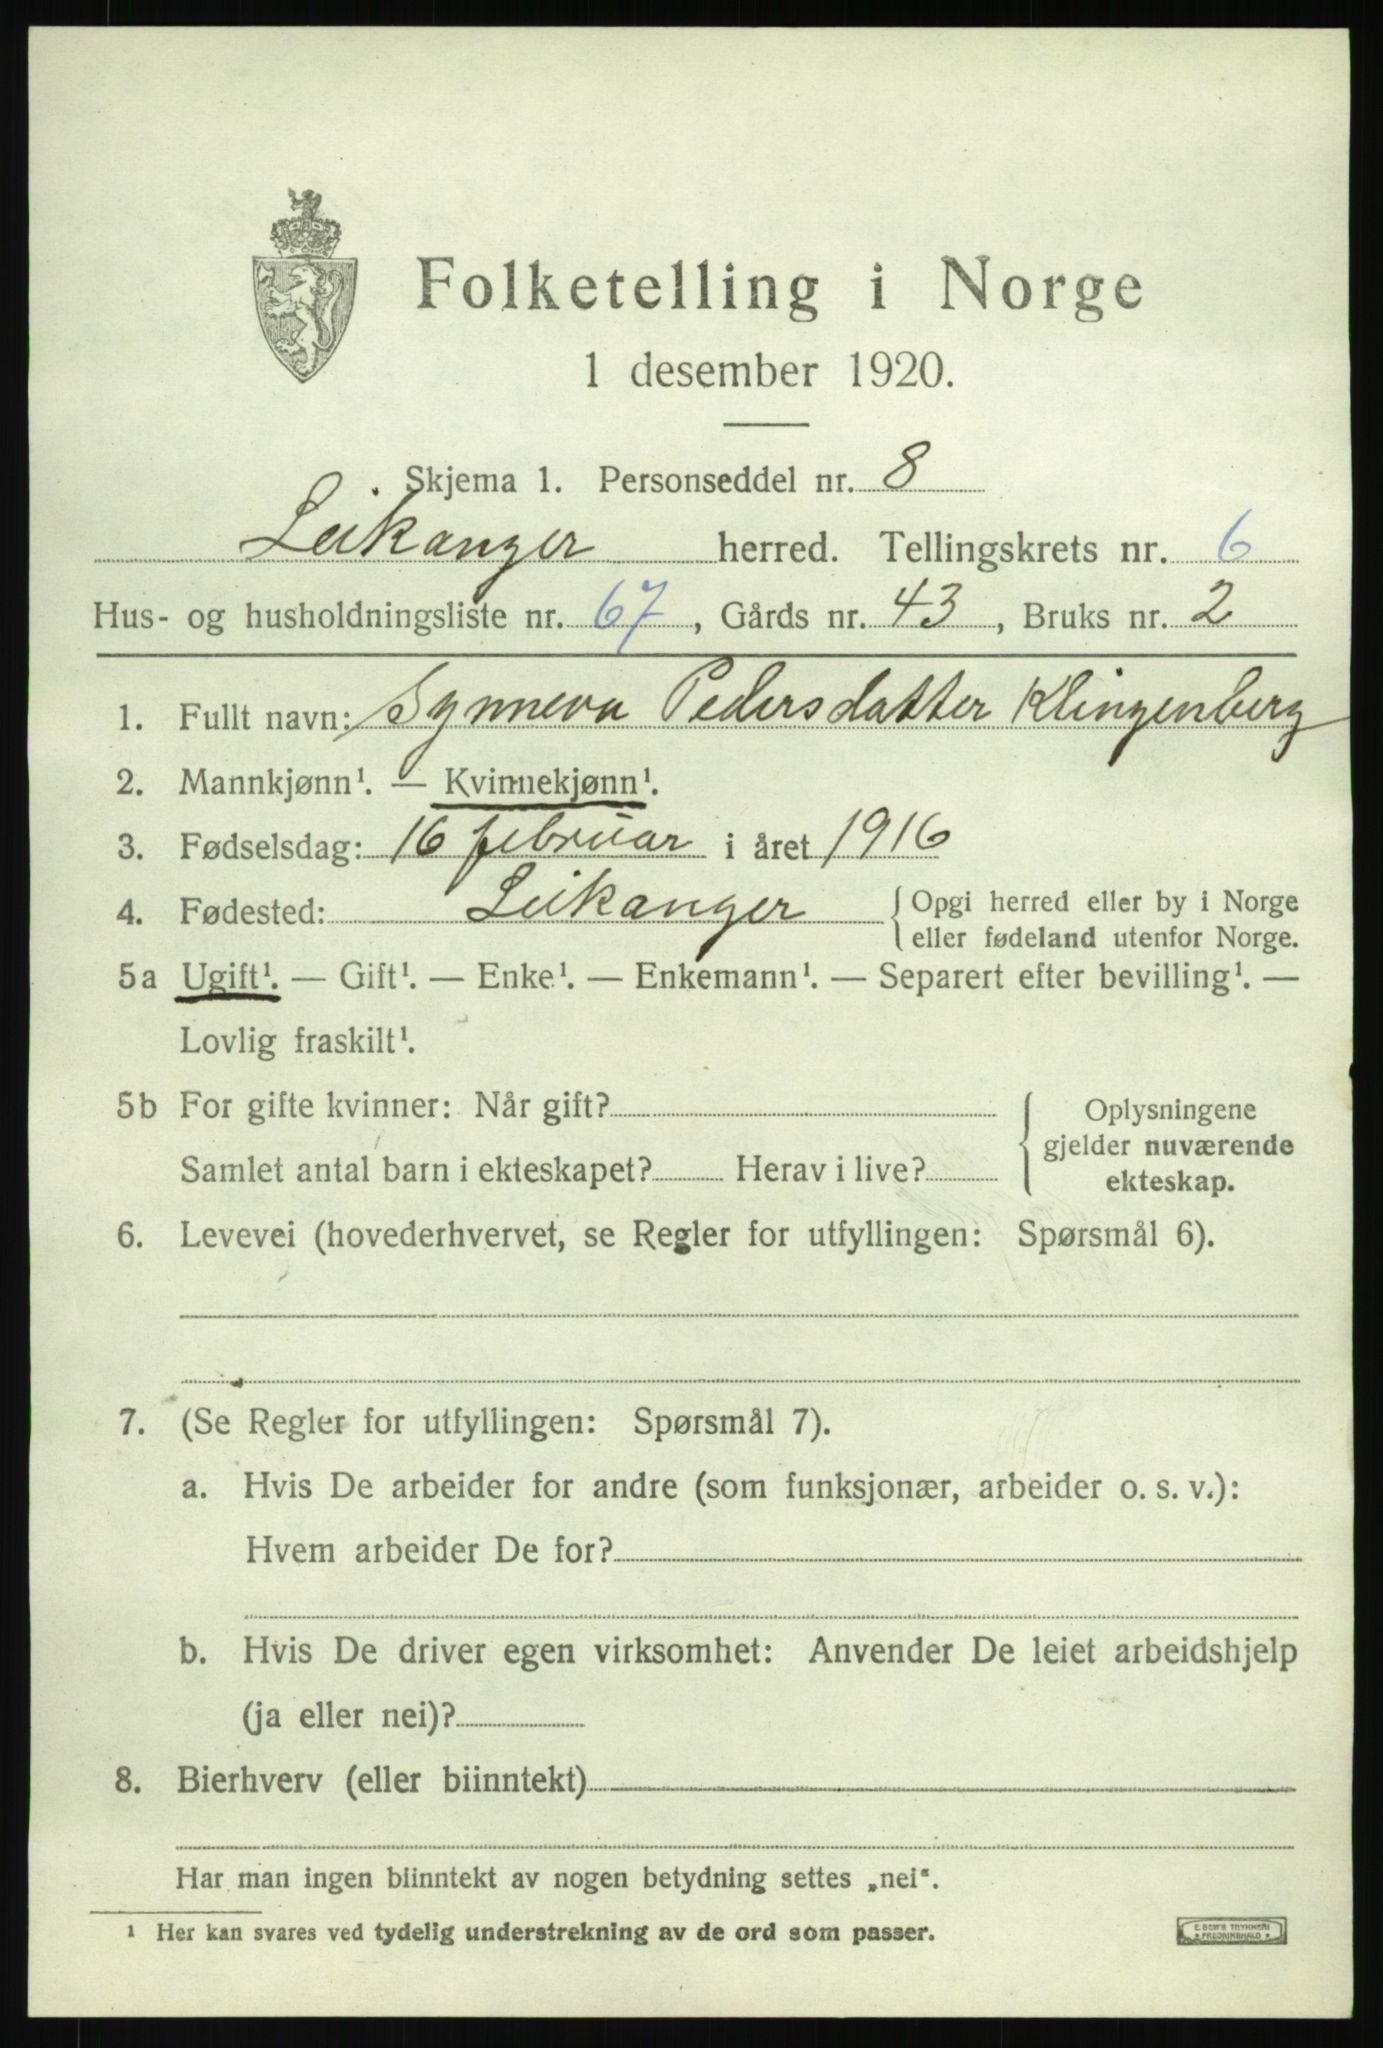 Folketelling i Norge
1 desember 1920.
Skjema 1. Personseddel nr. 8
Leikanger herred. Tellingskrets nr. 6
Hus- og husholdningsliste nr. 67, Gårds nr. 43, Bruks nr. 2
1. Fullt navn: Synneva Pedersdatter Klingenberg
2. Mannkjønn¹. — Kvinnekjønn¹.
3. Fødselsdag: 16 februar i året 1916
4. Fødested: Leikanger { Opgi herred eller by i Norge
eller fødeland utenfor Norge.
5a Ugift¹. — Gift¹. — Enke¹. — Enkemann¹. — Separert efter bevilling¹. —
Lovlig fraskilt¹.
5b For gifte kvinner: Når gift?
Samlet antal barn i ekteskapet? Herav i live?
{ Oplysningene
gjelder nuværende
ekteskap.
6. Levevei (hovederhvervet, se Regler for utfyllingen: Spørsmål 6).
7. (Se Regler for utfyllingen: Spørsmål 7).
a. Hvis De arbeider for andre (som funksjonær, arbeider o. s. v.):
Hvem arbeider De for?
b. Hvis De driver egen virksomhet: Anvender De leiet arbeidshjelp
(ja eller nei)?
8. Bierhverv (eller biinntekt)
Har man ingen biinntekt av nogen betydning settes „nei“.
¹ Her kan svares ved tydelig understrekning av de ord som passer.
E. SEM'S TRYKKERI
FREDRIKSHALD